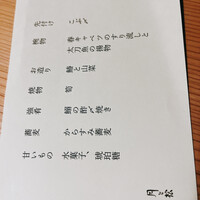 先付け　こぶ〆
椀物　春キャベツのすり流しと
太刀魚の揚物
お造り　鰆と山菜
焼物　筍
強肴　鰯の酢〆焼き
蕎麦　からすみ蕎麦
甘いもの　水菓子、琥珀糖
月と松